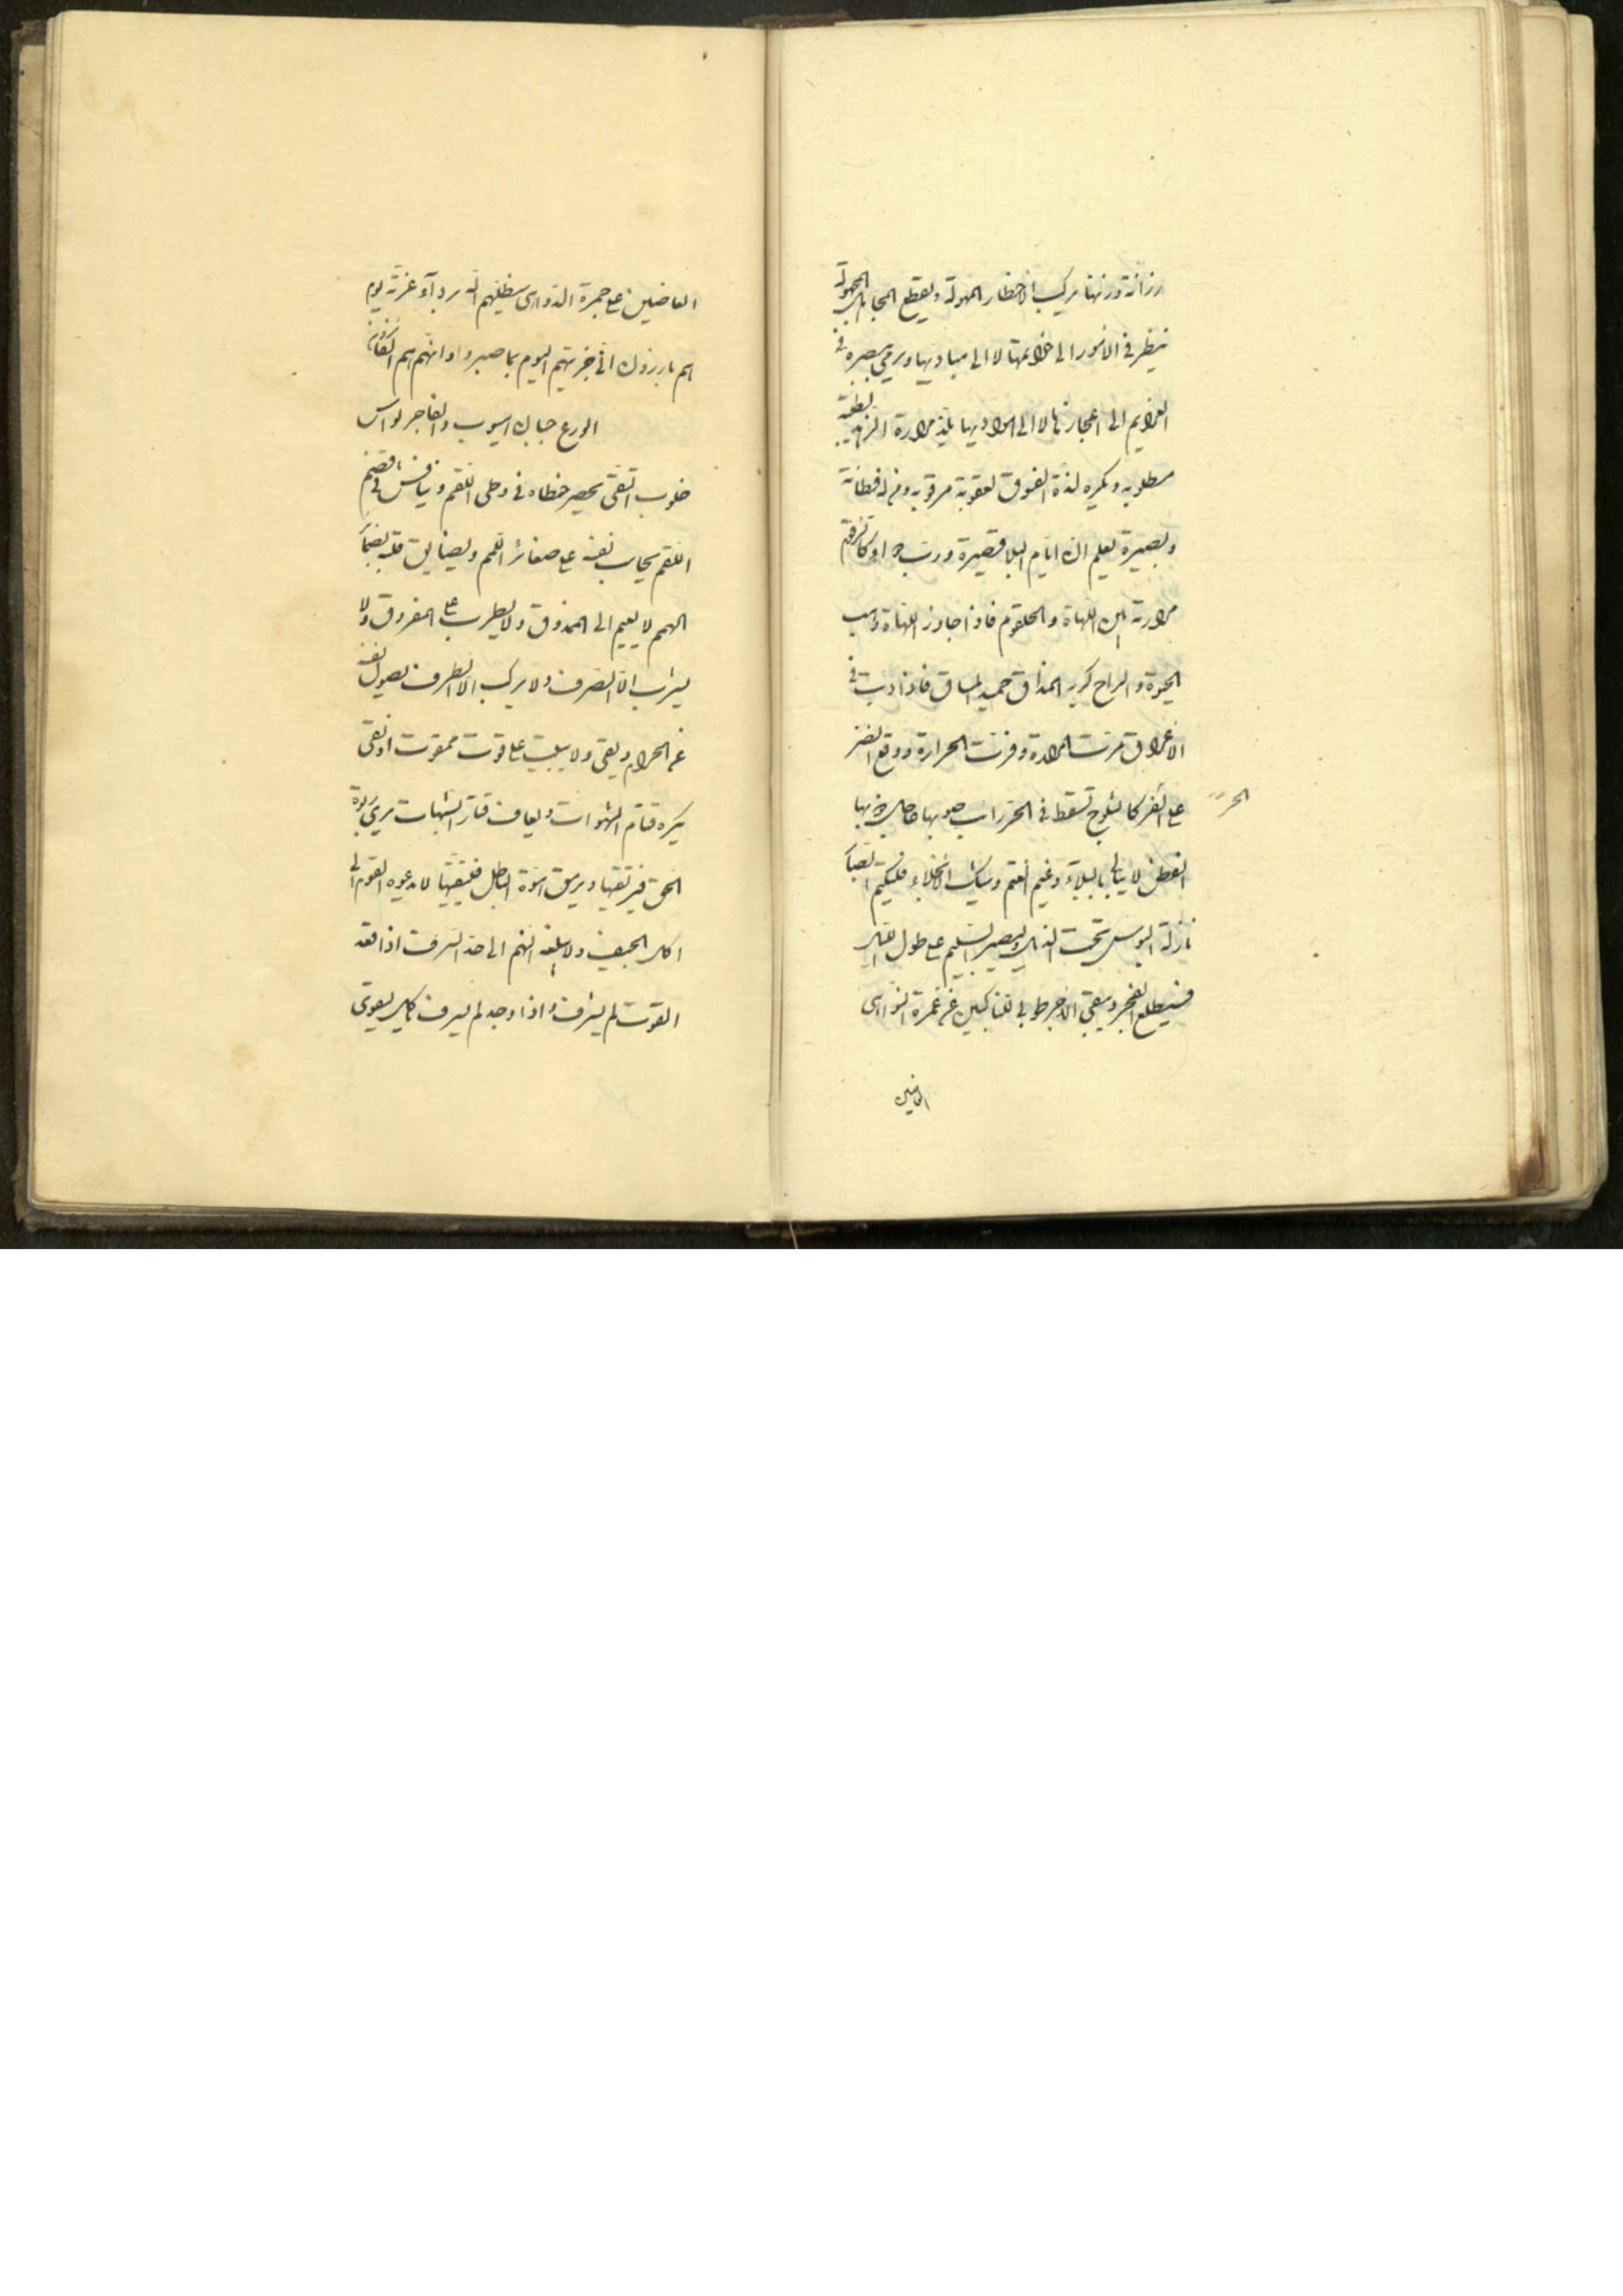 رزانة وزنها يركب الاخطار المهولة ويقطع المجاهل المجهولة
ينظر في الامور الى خواتمها لا الى مباديها ويرمي ببصره في
العزايم الى اعجازها لا الى هواديها يلتذ مرارة الزهد لطيبة
مطلوبه ويكره لذة الفسوق لعقوبة مرقوبه ومن له فطانة
وبصيرة يعلم ان ايام البلا قصيرة ورب
مرارته بين اللهاة والحلقوم فاذا جاوز اللهاة
الحيوة والراح كريه المذاق حميد المساق فاذا دبت في
الاعراق مرت المرارة وفرت الحرارة ووقع الضر
على الفر كالثلوج تسقط في الحزرات
الحر
الفطن لا يبالي بالبلاء وغيم الغم
نازلة البوس تحت الذيل وليصبر السليم على طول الليل
فسيطلع الفجر ويبقى الاجر طوبى للناكبين عن غمرة النواهى
القابضين
القابضين على جمرة الدواهى سيظلهم الله برداء عزته يوم
هم بارزون اني جزيتهم اليوم بما صبروا انهم هم الفائزون
الورع جباب اسيوب والفاجر لواس
خلوب التقى يحصر خطاه في وحى اللقم وينافس في قضم
اللقم يحاسب نفسه على صغائر اللمم ويضايق قلبه
الهمم لا يعيم الى الممذوق ولا يطرب على المفروق ولا
يشرب الا الصرف ولا يركب الا الطرف يصول نفسه
عن الحرام ويقى ولا يبيت على قوت ممقوت او نقى
يكره قتام الشهوات ويعاف قتار الشبهات يرى ربوة
الحق فيرتقيها ويرمق هوة الباطل فيتقيها لا يدعوه القرم الى
اكل الجيف ولا يبلغه النهم الى حد السرف اذا فقد
القوت لم يشرف واذا وجد لم يسرف كالير يعوى